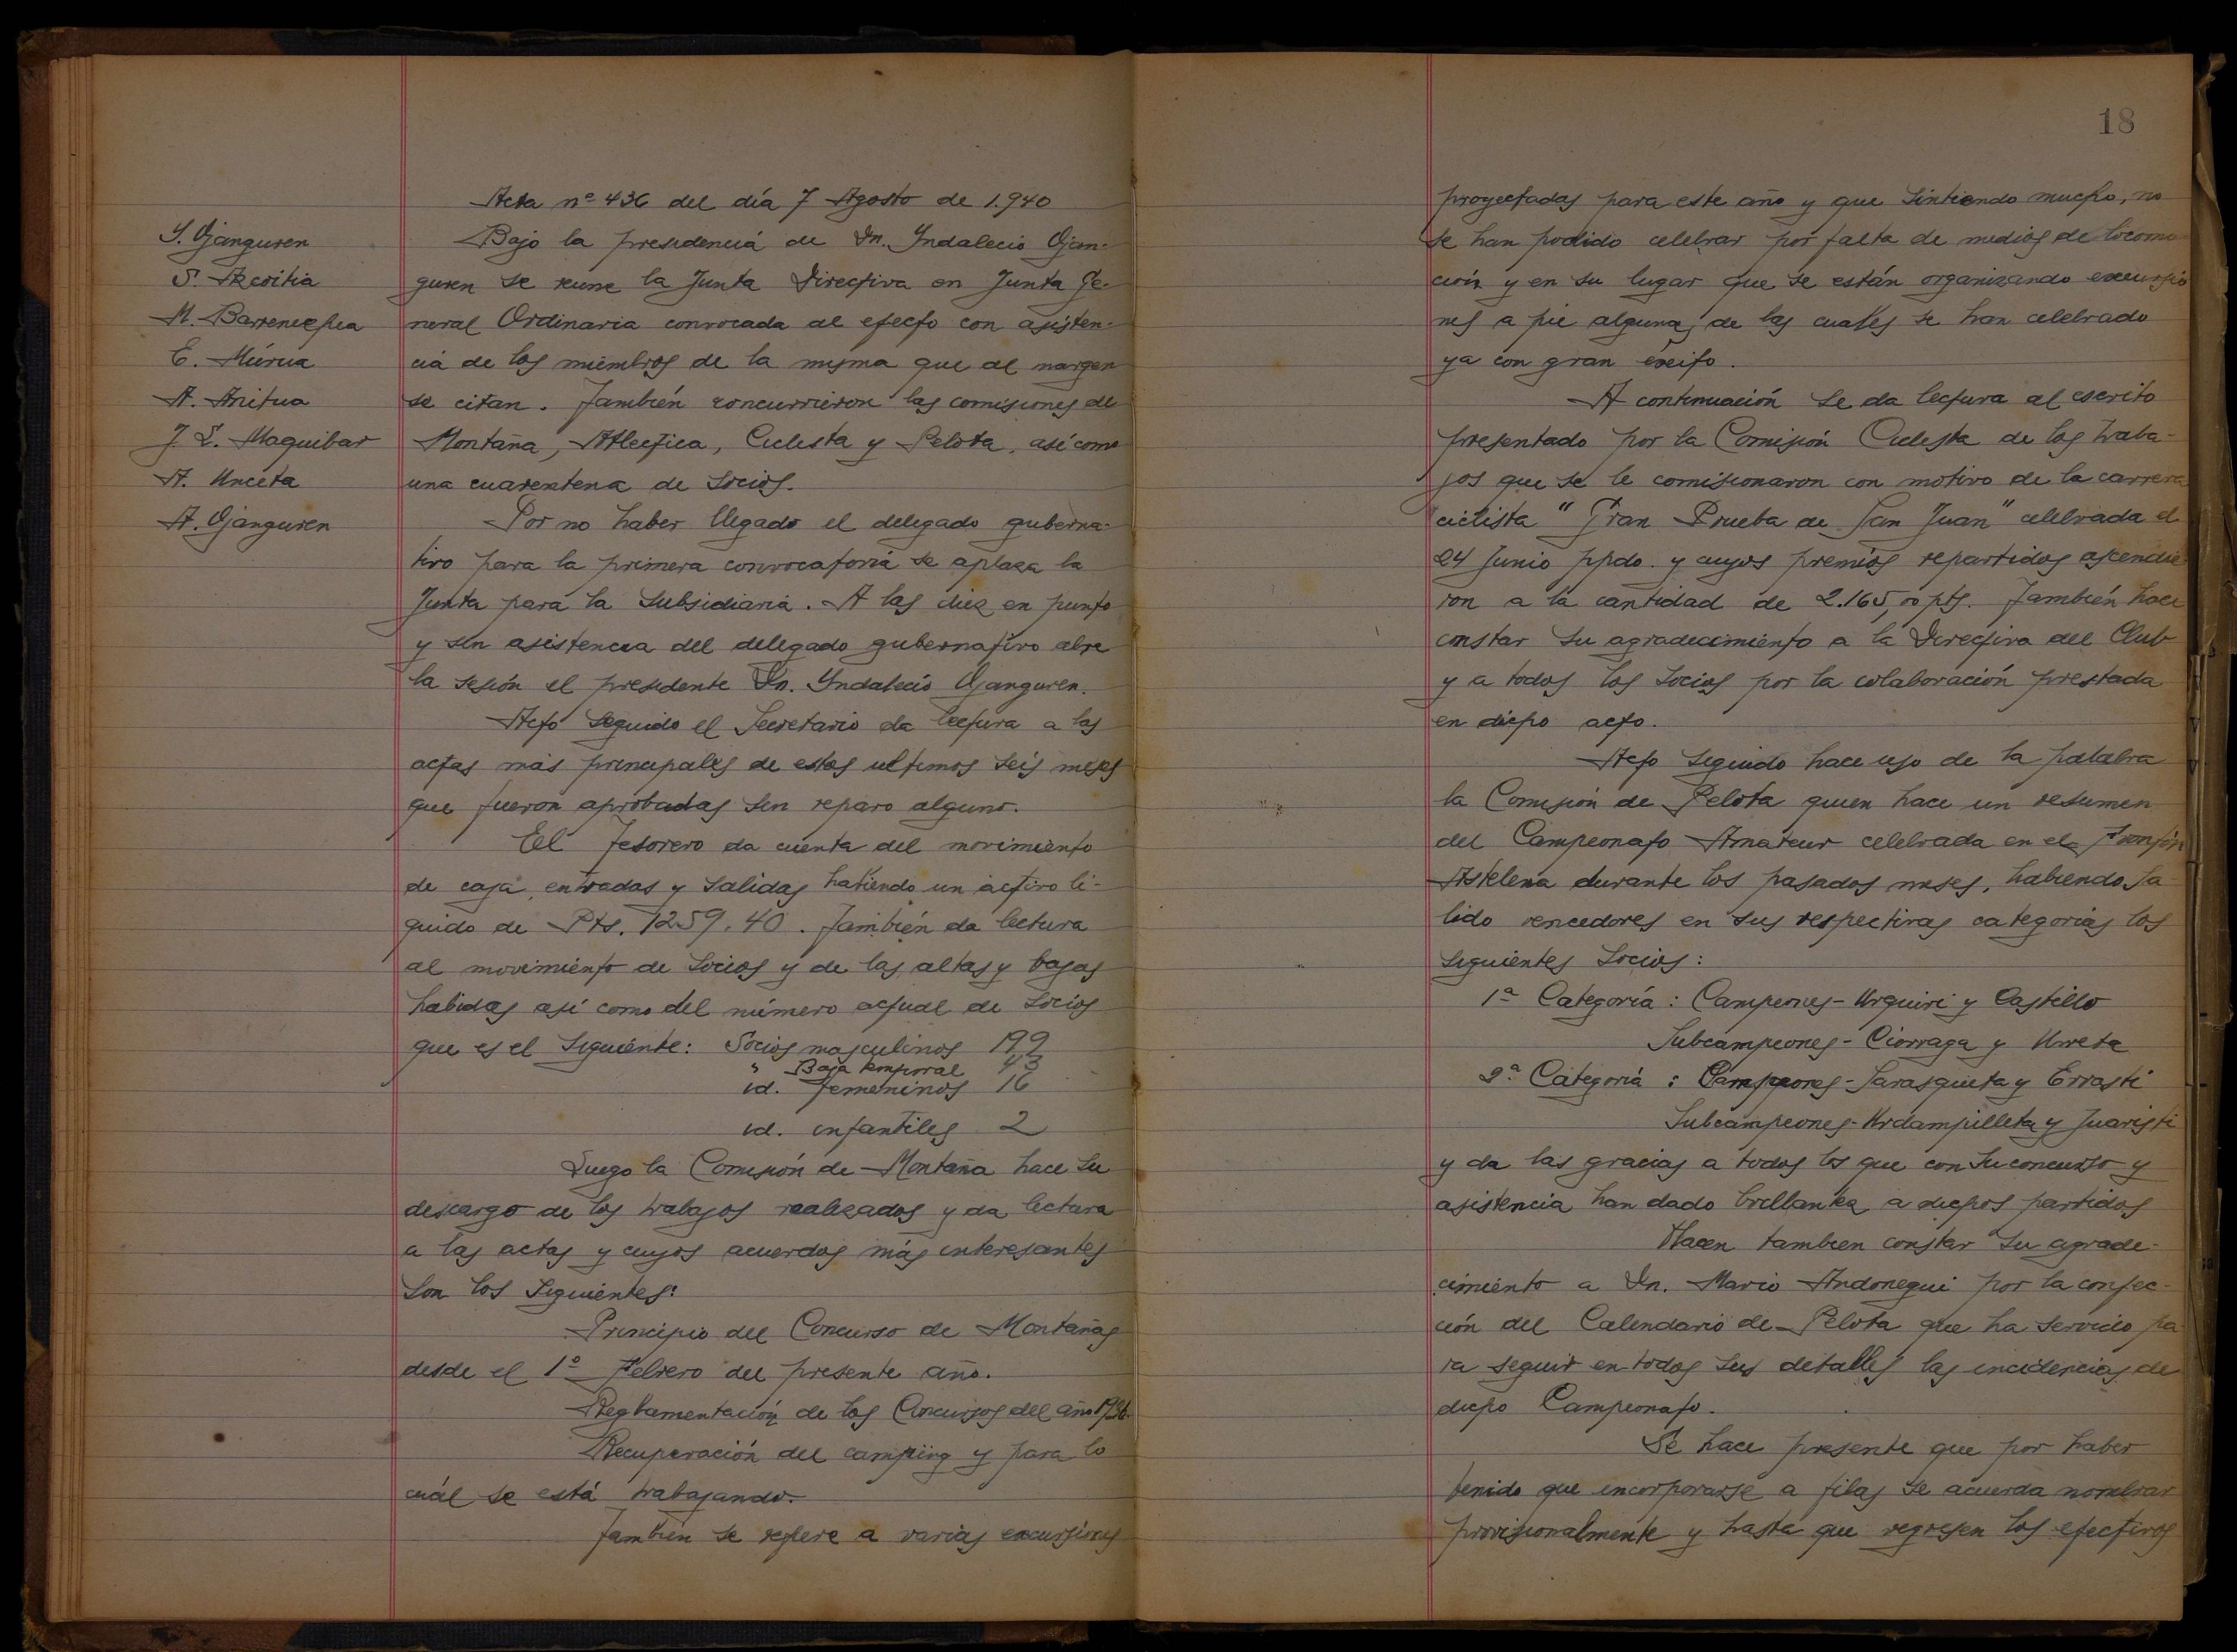 Acta nº 436 del día 7 Agosto de 1.940
Y. Ojanguren
S. Azcoitia
M. Barrenechea
E. Múrua
A. Anitua
J. L. Maguibar
A. Unceta
A. Ojanguren
Bajo la presidencia de Dn. Yndalecio Ojan-
guren se reune la Junta Directiva en Junta Ge-
neral Ordinaria convocada al efecto con asisten-
cia de los miembros de la misma que al margen
se citan. También concurrieron las comisiones de
Montaña, Atlectica, Ciclista y Pelota, así como
una cuarentena de socios.
Por no haber llegado el delegado guberna-
tivo para la primera convocatoria se aplaza la
Junta para la subsidiaria. A las diez en punto
y sin asistencia del delegado gubernativo abre
la sesión el presidente Dn. Yndalecio Ojanguren.
Acto seguido el Secretario da lectura a las
actas más principales de estos ultimos seis meses
que fueron aprobadas sin reparo alguno.
El Tesorero da cuenta del movimiento
de caja, entradas y salidas habiendo un activo lí-
quido de Pts. 1259.40. También da lectura
al movimiento de socios y de las altas y bajas
habidas así como del número actual de socios
que es el siguiente: Socios masculinos 199
" Baja temporal 43
id. femeninos 16
id. infantiles 2
Luego la Comisión de Montaña hace su
descargo de los trabajos realizados y da lectura
a las actas y cuyos acuerdos más interesantes
son los siguientes:
Principio del Concurso de Montañas
desde el 1º Febrero del presente año.
Reglamentación de los Concursos del año 1936.
Recuperación del camping y para lo
cuál se está trabajando.
También se refiere a varias excursiones
18
proyectadas para este año y que sintiendo mucho, no
se han podido celebrar por falta de medios de locomo-
ción y en su lugar que se están organizando excursio
nes a pie algunas de las cuales se han celebrado
ya con gran éxcito.
A continuación se da lectura al escrito
presentado por la Comisión Ciclista de los traba-
jos que se le comisionaron con motivo de la carrera
ciclista "Gran Prueba de San Juan" celebrada el
24 Junio ppdo. y cuyos premios repartidos ascendie-
ron a la cantidad de 2.165,00 pts. También hace
constar su agradecimiento a la Directiva del Club
y a todos los socios por la colaboración prestada
en dicho acto.
Acto seguido hace uso de la palabra
la Comisión de Pelota quien hace un resumen
del Campeonato Amateur celebrada en el Frontón
Astelena durante los pasados meses, habiendo sa-
lido vencedores en sus respectivas categorias los
siguientes socios:
1ª Categoría: Campeones - Urquiri y Castillo
Subcampeones - Ciorraga y Urreta
2ª Categoría: Campeones - Sarasqueta y Errasti
Subcampeones - Urdampilleta y Juaristi
y da las gracias a todos los que con su concurso y
asistencia han dado brillantez a dichos partidos
Hacen tambien constar su agrade-
cimiento a Dn. Mario Andonegui por la confec-
ción del Calendario de Pelota que ha servicio pa
ra seguir en todos sus detalles las incidencias de
dicho Campeonato.
Se hace presente que por haber
tenido que incorporarse a filas se acuerda nombrar
provisionalmente y hasta que regresen los efectivos